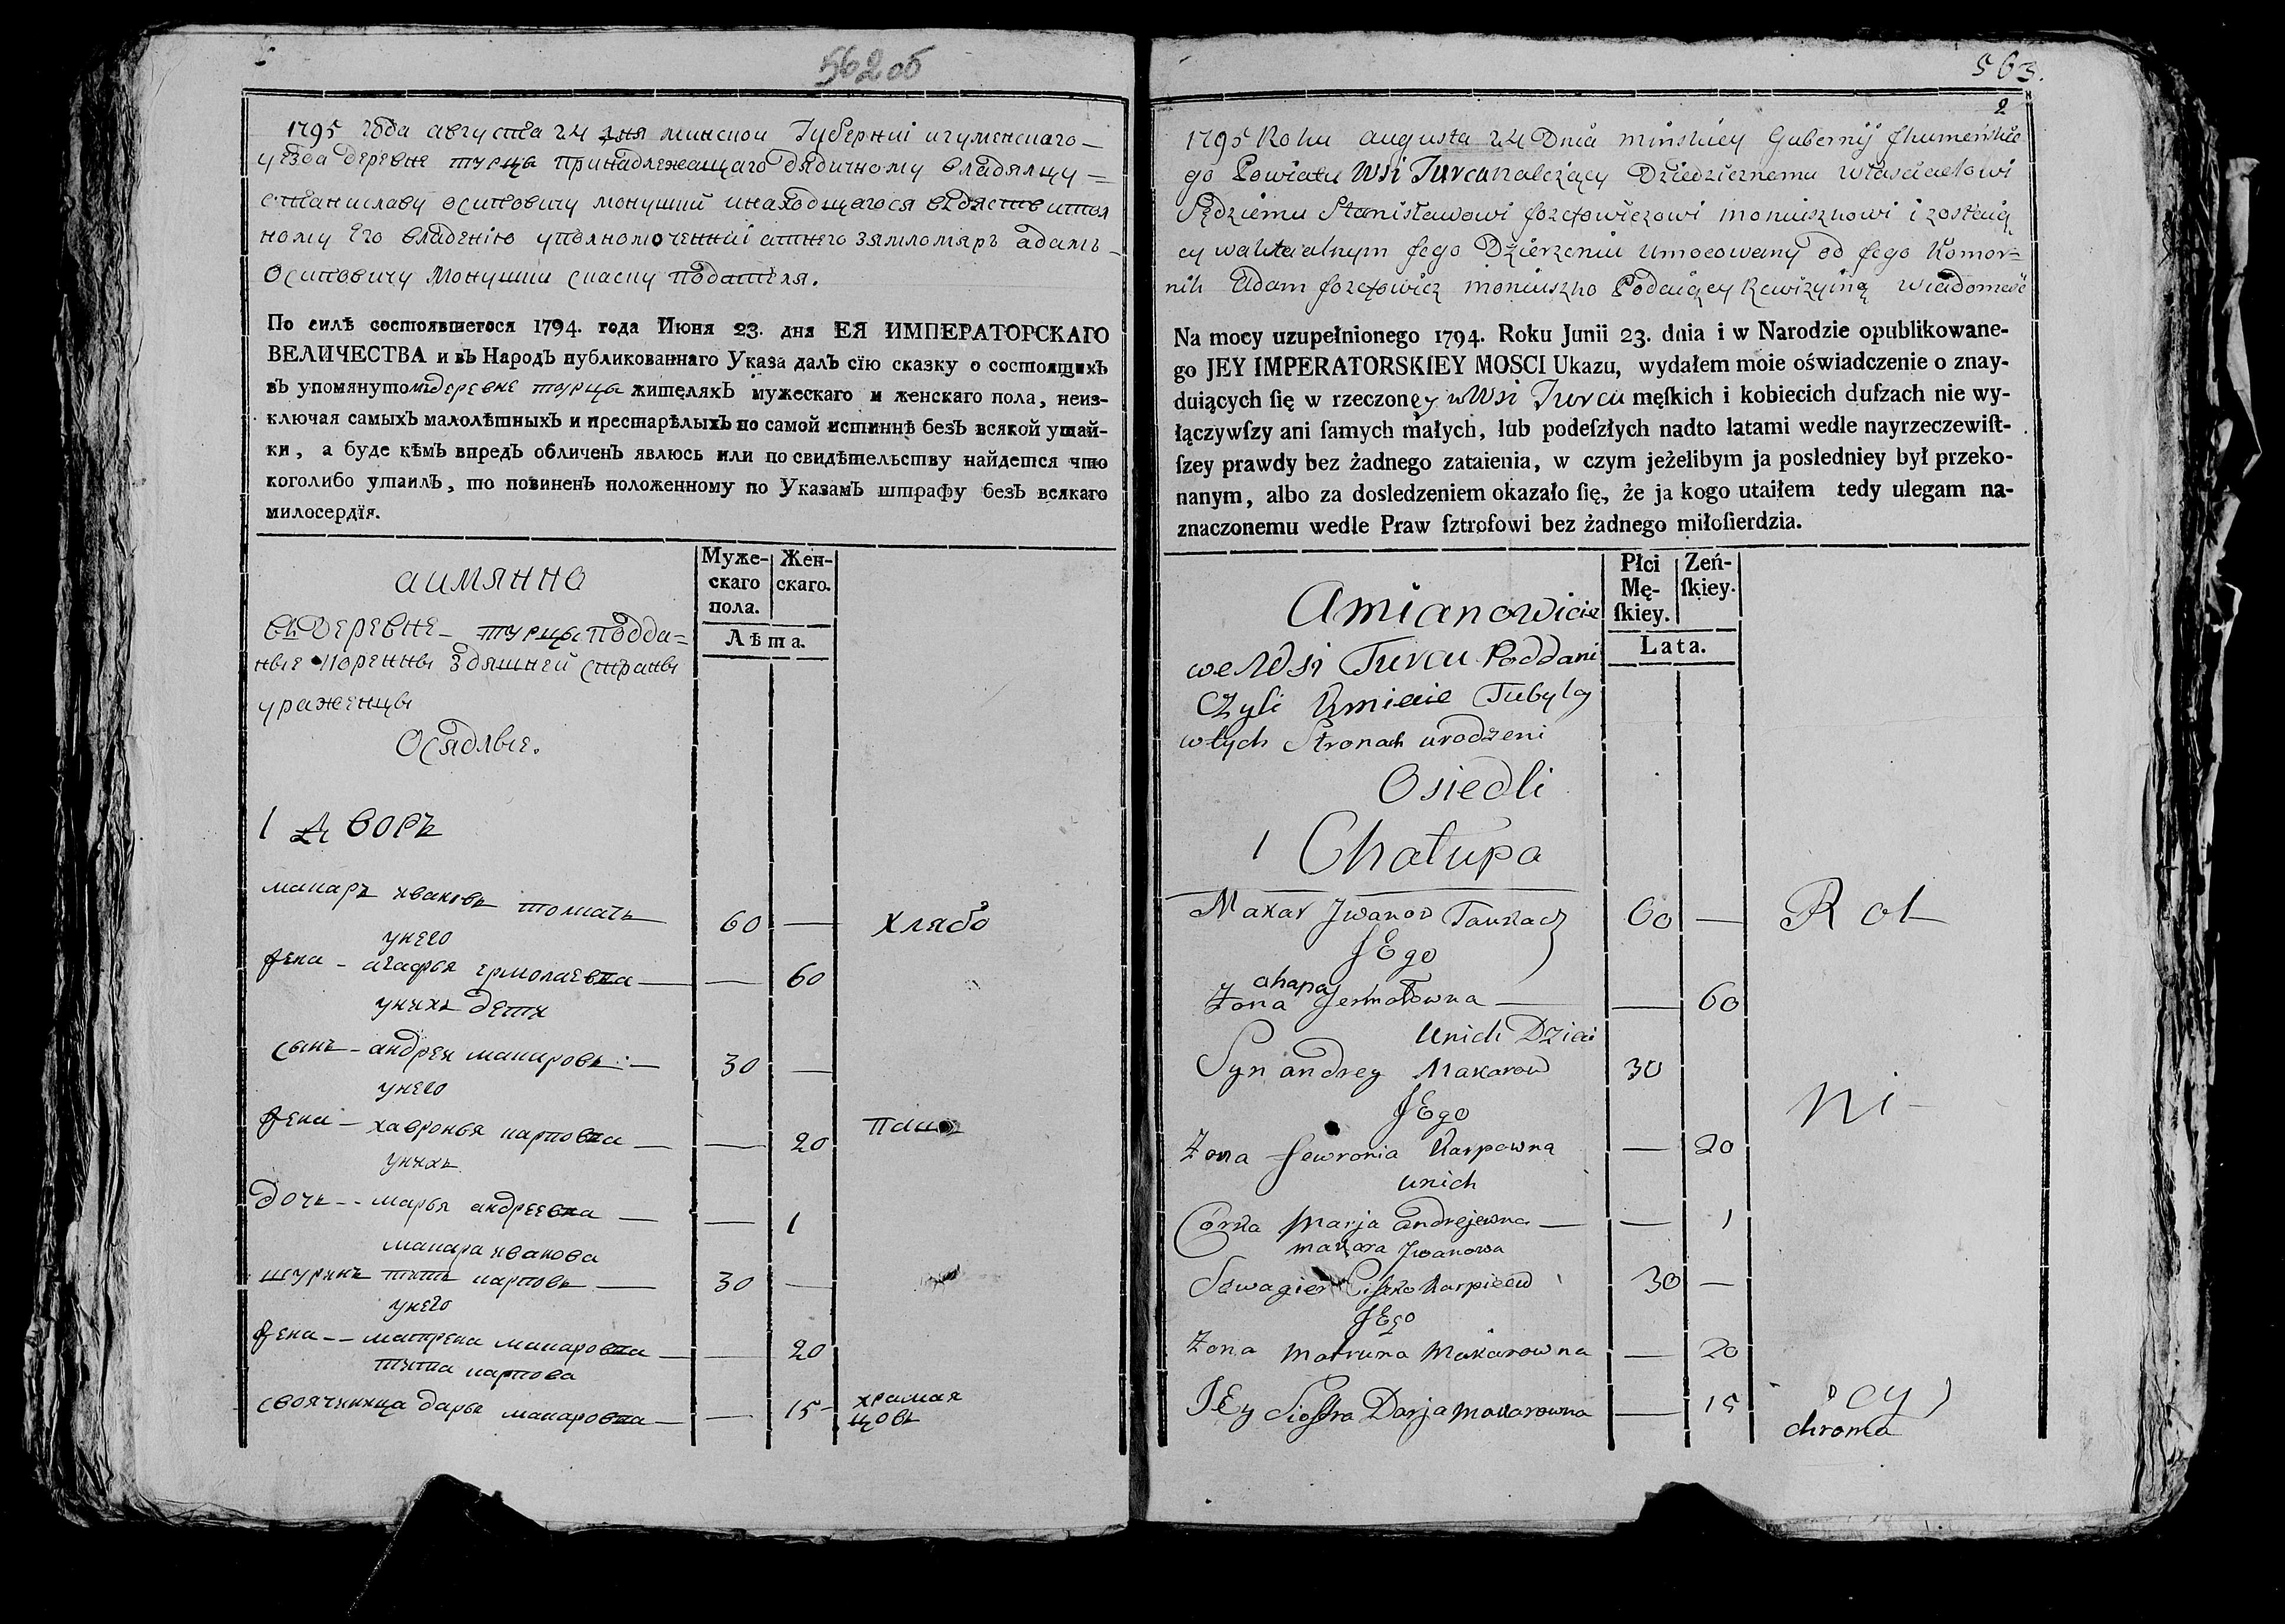 562об
1795 года августа 24 дня минской Губерніи игуменскаго
уезда деревне турцы принадлежащаго дядичному владялцу
станиславу осиповичу монушки инаходщагося вдяствител
ному Его владенію уполномоченніи атнего замломяръ адамъ
Осиповичу Монушки скаску подателя.
По силѣ состоявшегося 1794. года Июня 23. дня ЕЯ ИМПЕРАТОРСКАГО
ВЕЛИЧЕСТВА и въ Народъ публикованнаго Указа далъ сїю сказку о состоящихъ
въ упомянутомъ деревне турцы жителяхъ мужескаго и женскаго пола, неиз-
ключая самыхъ малолѣтныхъ и престарѣлыхъ по самой истиннѣ безъ всякой утай-
ки, а буде кѣмъ впредъ обличенъ явлюсь или по свидѣтельству найдется что
коголибо утаилъ, то повиненъ положенному по Указамъ штрафу безъ всякаго
милосердїя.
Муже-
скаго
пола.
Жен-
скаго.
Лѣта.
аимянно
въ деревне турцы подда=
ные коренны здяшней страны
ураженцы
Осядлые.
1 дворъ
макаръ ивановъ толкачъ 60 — хлябо
унего
жена — агафья ермолаевна — 60
унихъ дети
сынъ — андреи макаровъ — 30 —
унего
жена — хавронья карповна — 20 паш
унихъ
дочь — марья андреевна — 1
макара иванова
шуринъ титъ карповъ — 30 —
унего
жена — матрена макаровна — 20
тита карпова
своячиница дарья макаровна — 15 храмая
цовъ
563.
2
1795 Roku augusta 24 Dnia minskiey Gubernij Jhumeńskie
go Powiatu Wsi Turcu nalezący Dziedzicznemu właścicielowi
Sędziemu Stanisławowi Jozefowiczowi moniuszkowi i zostaią
cy waktualnym Jego Dzierzeniu Umocowany od Jego Komor=
nik Adam Jozefowicz moniuszko Podaiącey Rewizyiną wiadomość
Na mocy uzupełnionego 1794. Roku Junii 23. dnia i w Narodzie opublikowane-
go JEY IMPERATORSKIEY MOSCI Ukazu, wydałem moie oświadczenie o znay-
duiących ſię w rzeczoney wWsi Turcu męſkich i kobiecich duſzach nie wy-
łączywſzy ani ſamych małych, lub podeſzłych nadto latami wedle nayrzeczewiſt-
ſzey prawdy bez żadnego zataienia, w czym jeżelibym ja posledniey był przeko-
nanym, albo za dosledzeniem okazało ſię, że ja kogo utaiłem tedy ulegam na-
znaczonemu wedle Praw ſztrofowi bez żadnego miłoſierdzia.
Płci
Mę-
ſkiey.
Zeń-
ſkiey.
Lata.
Amianowicie
we Wsi Turcu Poddani
Czyli Kmiecie Tubylcy
wtych Stronach urodzeni
Osiedli
1 Chałupa
Makar Jwanow Taukacz 60 — Rol
JEgo
ahapa
Żona Jermołowna — 60
Unich Dzieci
Syn andrey Makarow 30
JEgo
Ni
Żona Hewronia Karpowna — 20
unich
Córka Marja andrejewna — 1
makara Jwanowa
Szwagier Ciszko Karpieew 30 —
JEgo
Żona Matruna Makarowna — 20
JEy Siostra Darja Makarowna — 15 cy
chroma